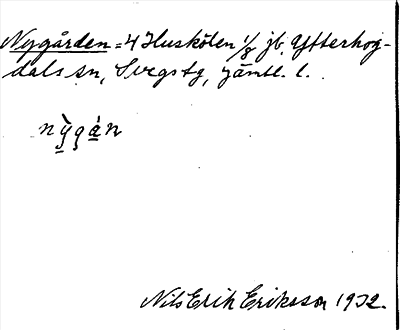 Nygården = 4 Huskölen 1/8 jb. Ytterhog-
dals sn, Svegs tg, Jämtl. l.
nỳgá̱n
Nils Erik Eriksson 1932.